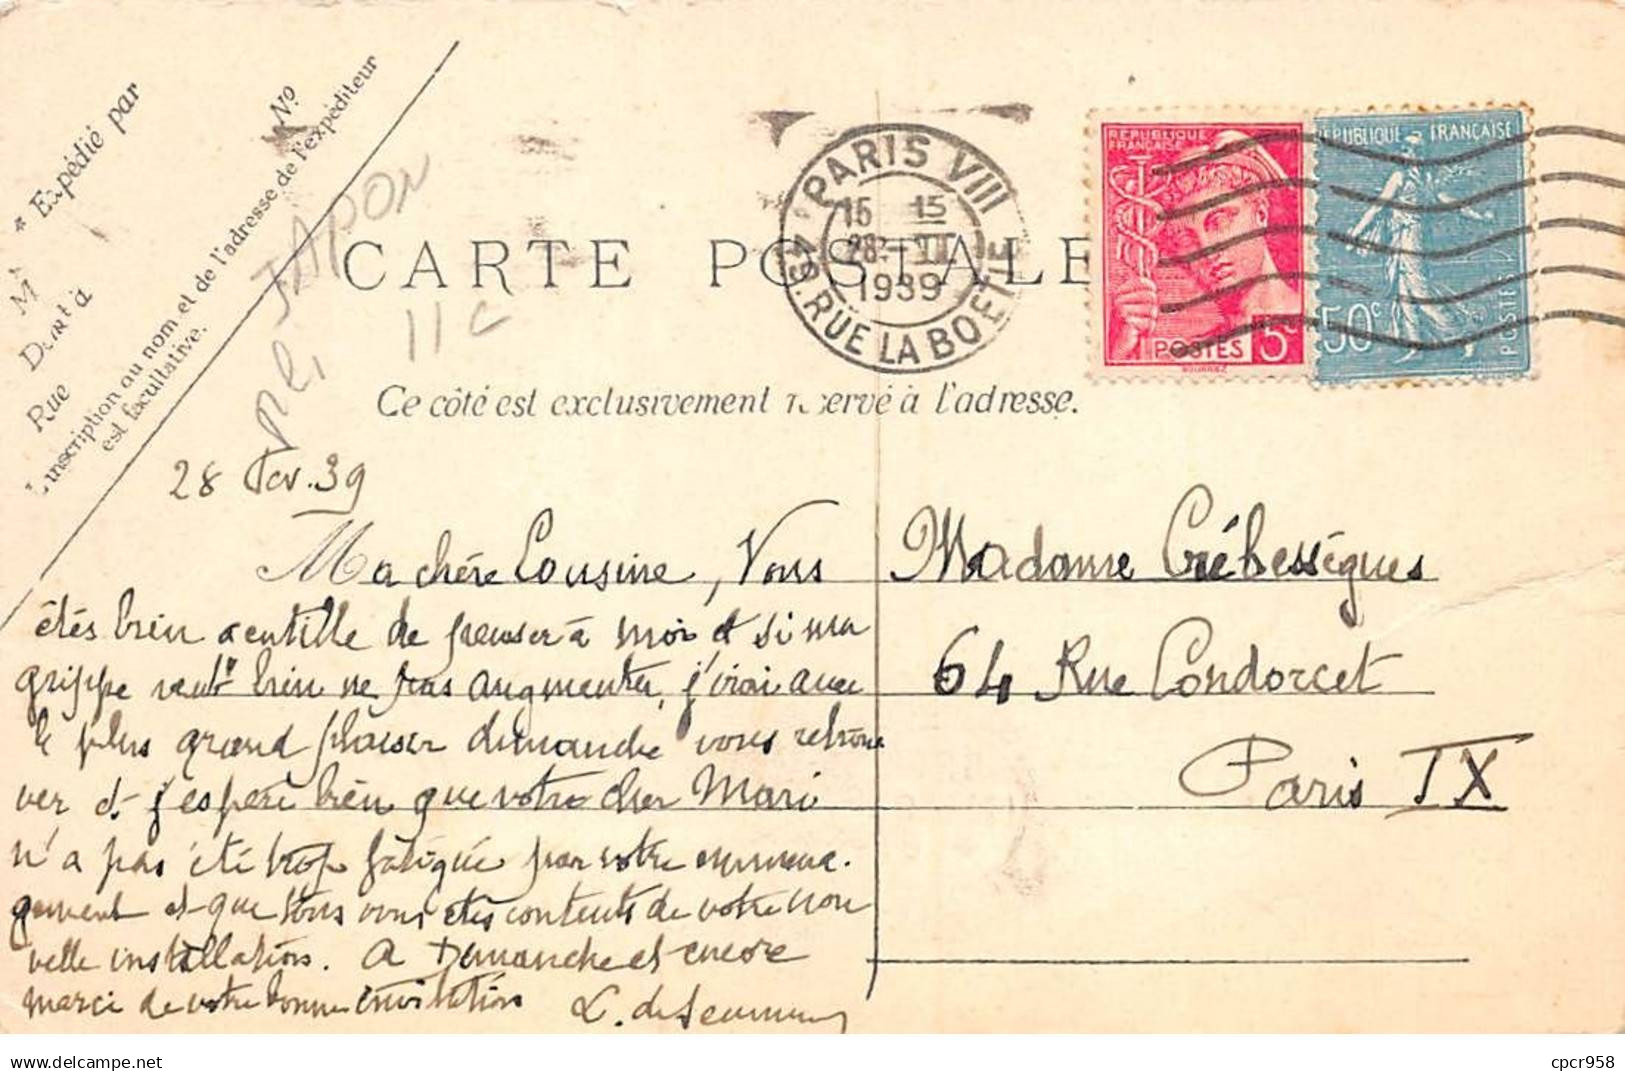 * Expédié par
M
Demt à
Rue
N°
L'inscription au nom et de l'adresse de l'expéditeur
est facultative.
JAPON
11c
CARTE POSTALE
Ce côté est exclusivement réservé à l'adresse.
PARIS VIII
16 15
28 - II
1939
49. RUE LA BOETIE
REPUBLIQUE
FRANÇAISE
POSTES 5c
REPUBLIQUE FRANÇAISE
50c
POSTES
28 Fev. 39
Ma chère Cousine, Vous
êtes bien gentille de penser à moi et si ma
grippe veut bien ne pas augmenter, j'irai avec
le plus grand plaisir dimanche vous retrou
ver et j'espère bien que votre cher Mari
n'a pas été trop fatigué par votre emmena-
gement et que tous vous êtes contents de votre nou
velle installation. A Dimanche et encore
merci de votre bonne invitation
L. de
Madame Crébessègues
64 Rue Condorcet
Paris IX
cpcr958